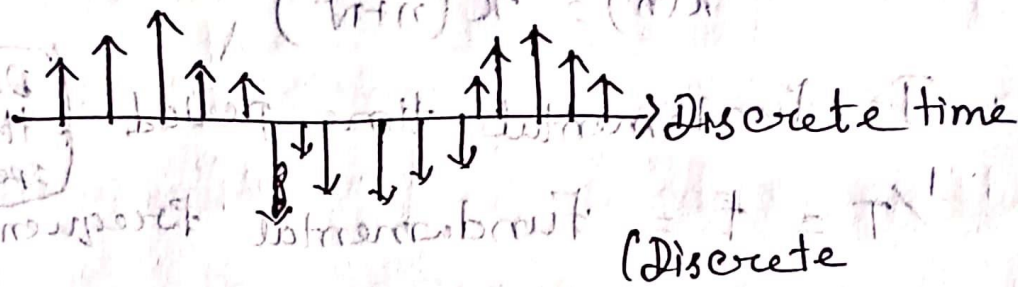 Discrete time
(Discrete